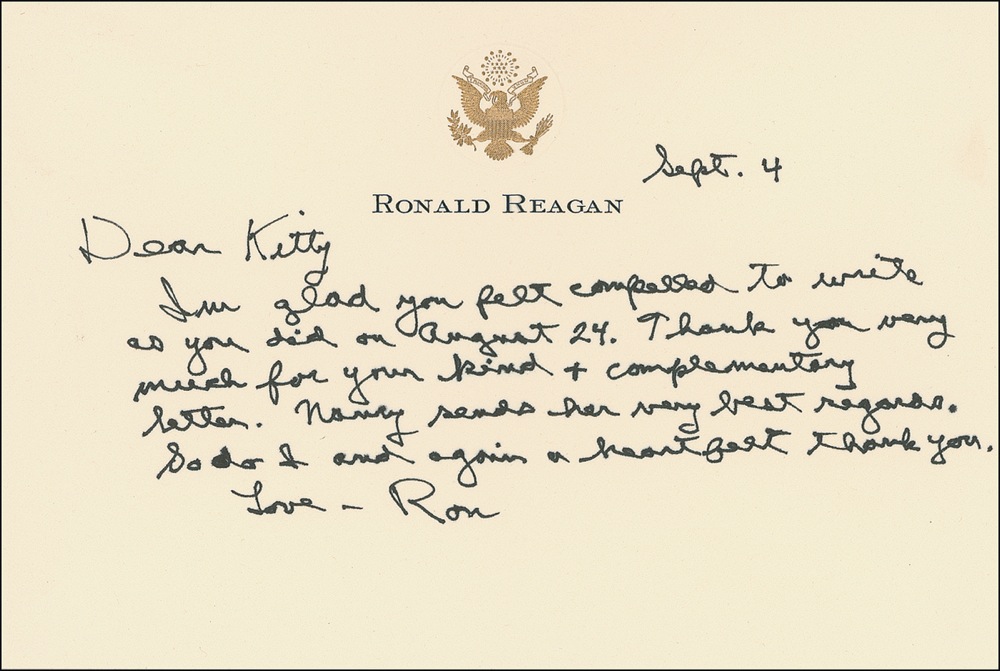 Sept. 4
RONALD REAGAN
Dear Kitty
I'm glad you felt compelled to write
as you did on August 24. Thank you very
much for your kind + complementary
letter. Nancy sends her very best regards.
So do I and again a heartfelt thank you.
Love – Ron